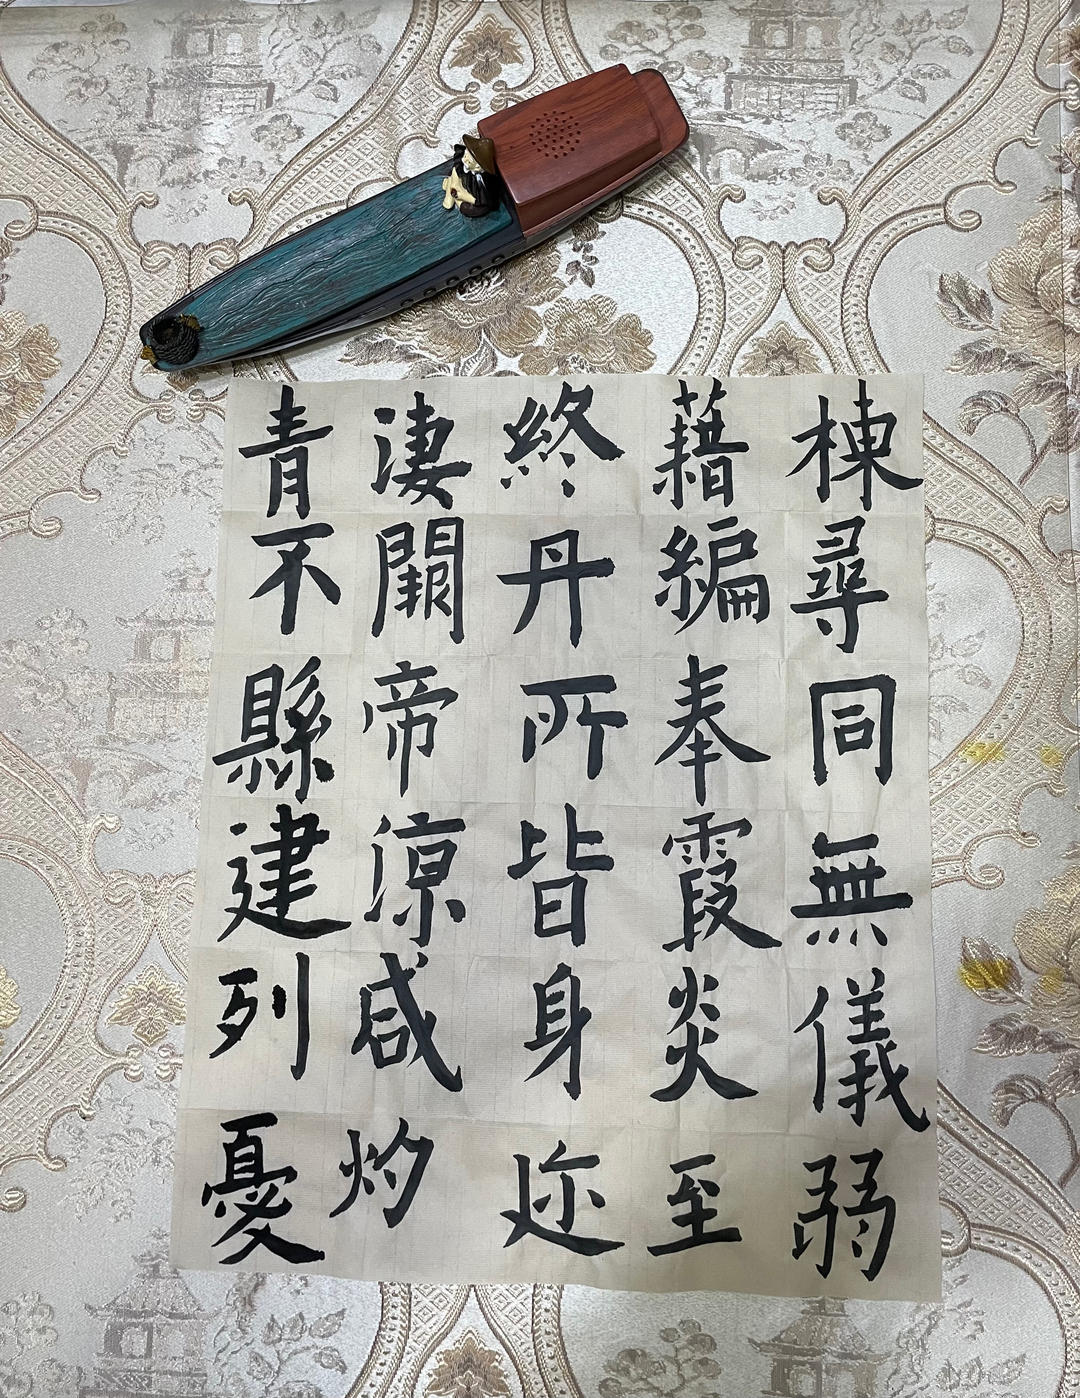 棟尋同無儀弱
藉編奉霞炎至
終丹所皆身迩
淒闞帝涼咸灼
青不縣建列憂